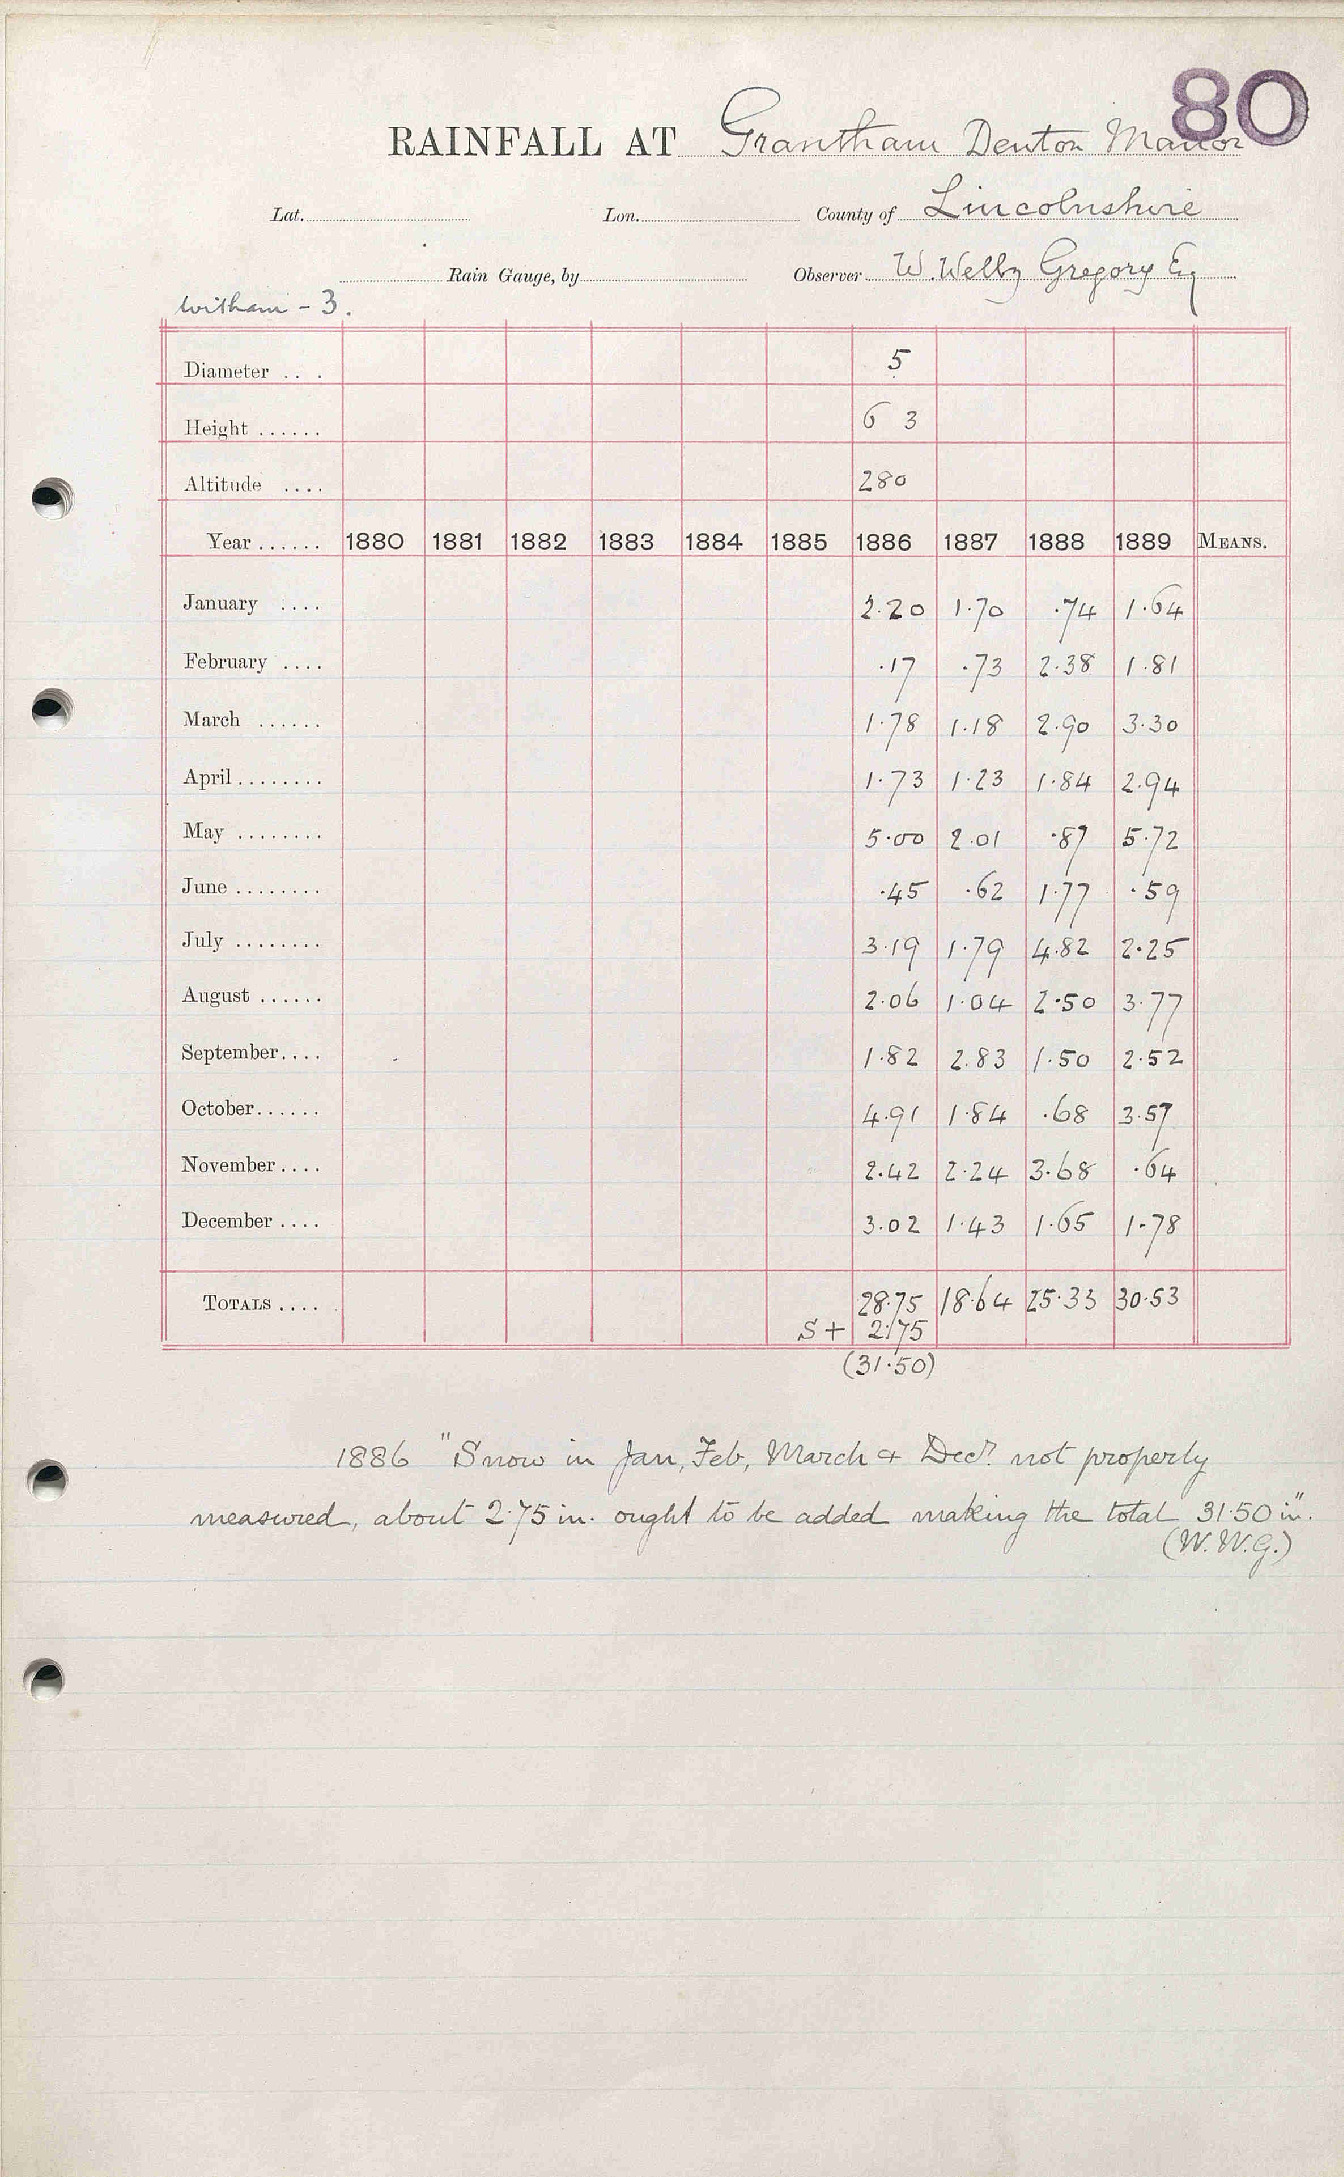 80
RAINFALL AT Grantham Denton Manor
Lat. Lon. County of Lincolnshire
Rain Gauge, by Observer W. Welby Gregory Esq
Witham - 3.
Diameter . . . 5
Height ...... 6 3
Altitude .... 280
Year ...... 1880 1881 1882 1883 1884 1885 1886 1887 1888 1889 MEANS.
January .... 2.20 1.70 .74 1.64
February .... .17 .73 2.38 1.81
March ...... 1.78 1.18 2.90 3.30
April ........ 1.73 1.23 1.84 2.94
May ........ 5.00 2.01 .87 5.72
June ........ .45 .62 1.77 .59
July ........ 3.19 1.79 4.82 2.25
August ...... 2.06 1.04 2.50 3.77
September.... 1.82 2.83 1.50 2.52
October...... 4.91 1.84 .68 3.57
November .... 2.42 2.24 3.68 .64
December .... 3.02 1.43 1.65 1.78
TOTALS .... 28.75 18.64 25.33 30.53
S + 2.75
(31.50)
1886 "Snow in Jan, Feb, March & Decr. not properly
measured, about 2.75 in. ought to be added making the total 31.50 in".
(W.W.G.)